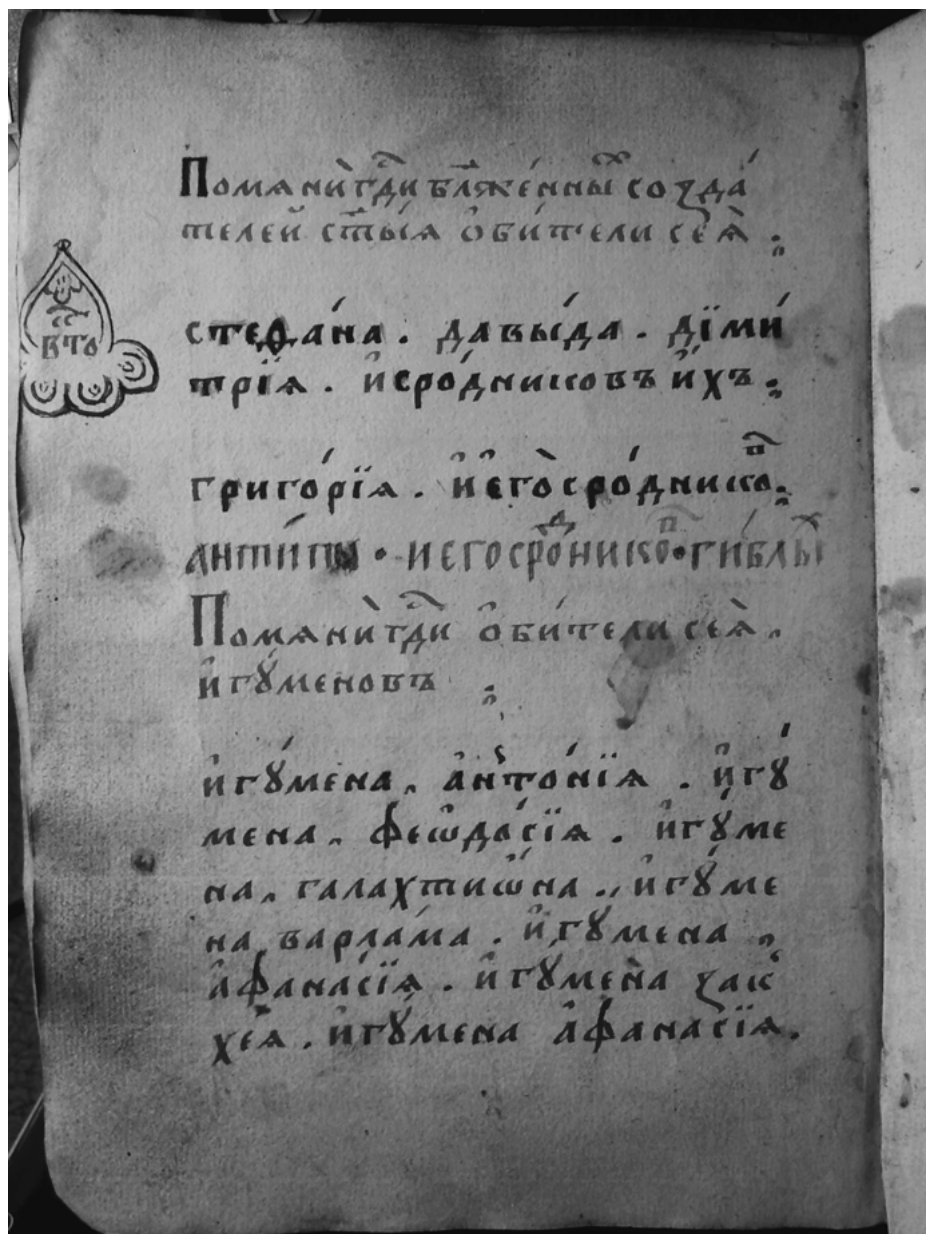 Помѧнѝ гд҃и бл҃же́нныⷯ созда́
телей ст҃ы́ѧ ѻ҆би́тели сеѧ̀ .
вто
стефа́на . давы́да . дїми́
трїѧ . и҆сро́дниковъ и҆́хъ .
григо́рїѧ . и҆ єго̀ сро́дникоⷡ҇ .
антипы • и его сроⷣникоⷡ҇ • гиблыⷯ
Помѧнѝ гд҃и ѻ҆би́тели сеѧ̀ .
и҆гꙋ́меновъ
и҆гꙋ́мена . а҆нто́нїѧ . и҆гꙋ́
мена . феѡдо́сїѧ . и҆гꙋ́ме
на . галахтиѡ́на . и҆гꙋ́ме
на варла́ма . и҆гꙋ́мена
а҆фана́сїѧ . и҆гꙋ́мена зак
хе́ѧ . и҆гꙋ́мена а҆фана́сїѧ .